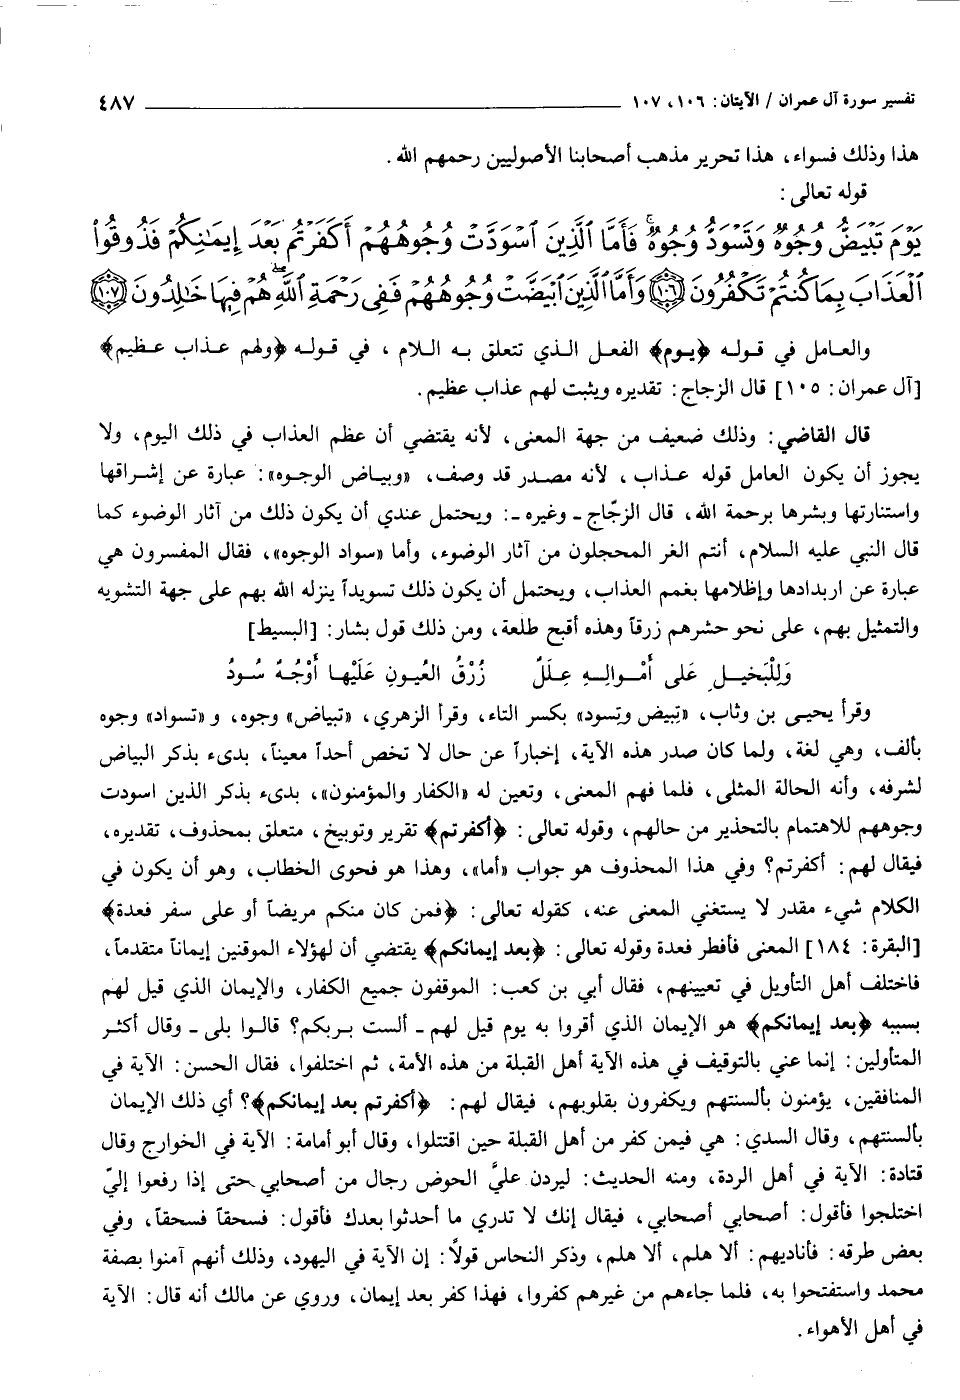 تفسير سورة آل عمران / الآيتان: ١٠٦، ١٠٧ ٤٨٧
هذا وذلك فسواء، هذا تحرير مذهب أصحابنا الأصوليين رحمهم الله.
قوله تعالى:
يَوْمَ تَبْيَضُّ وُجُوهٌ وَتَسْوَدُّ وُجُوهٌ ۚ فَأَمَّا الَّذِينَ اسْوَدَّتْ وُجُوهُهُمْ أَكَفَرْتُمْ بَعْدَ إِيمَٰنِكُمْ فَذُوقُوا
الْعَذَابَ بِمَا كُنتُمْ تَكْفُرُونَ ١٠٦ وَأَمَّا الَّذِينَ ابْيَضَّتْ وُجُوهُهُمْ فَفِي رَحْمَةِ اللَّهِ ۖ هُمْ فِيهَا خَالِدُونَ ١٠٧
والعامل في قوله ﴿يوم﴾ الفعل الذي تتعلق به اللام، في قوله ﴿ولهم عذاب عظيم﴾
[آل عمران: ١٠٥] قال الزجاج: تقديره ويثبت لهم عذاب عظيم.
قال القاضي: وذلك ضعيف من جهة المعنى، لأنه يقتضي أن عظم العذاب في ذلك اليوم، ولا
يجوز أن يكون العامل قوله عذاب، لأنه مصدر قد وصف، «وبياض الوجوه»: عبارة عن إشراقها
واستنارتها وبشرها برحمة الله، قال الزجّاج ـ وغيره ـ: ويحتمل عندي أن يكون ذلك من آثار الوضوء كما
قال النبي عليه السلام، أنتم الغر المحجلون من آثار الوضوء، وأما «سواد الوجوه»، فقال المفسرون هي
عبارة عن اربدادها وإظلامها بغمم العذاب، ويحتمل أن يكون ذلك تسويداً ينزله الله بهم على جهة التشويه
والتمثيل بهم، على نحو حشرهم زرقاً وهذه أقبح طلعة، ومن ذلك قول بشار: [البسيط]
وَلِلْبَخيلِ عَلى أَمْوالِهِ عِلَلٌ زُرْقُ العُيونِ عَلَيْها أَوْجُهٌ سُودُ
وقرأ يحيى بن وثاب، «تِبيض وتِسود» بكسر التاء، وقرأ الزهري، «تبياض» وجوه، و «تسواد» وجوه
بألف، وهي لغة، ولما كان صدر هذه الآية، إخباراً عن حال لا تخص أحداً معيناً، بدىء بذكر البياض
لشرفه، وأنه الحالة المثلى، فلما فهم المعنى، وتعين له «الكفار والمؤمنون»، بدىء بذكر الذين اسودت
وجوههم للاهتمام بالتحذير من حالهم، وقوله تعالى: ﴿أكفرتم﴾ تقرير وتوبيخ، متعلق بمحذوف، تقديره،
فيقال لهم: أكفرتم؟ وفي هذا المحذوف هو جواب «أما»، وهذا هو فحوى الخطاب، وهو أن يكون في
الكلام شيء مقدر لا يستغني المعنى عنه، كقوله تعالى: ﴿فمن كان منكم مريضاً أو على سفر فعدة﴾
[البقرة: ١٨٤] المعنى فأفطر فعدة وقوله تعالى: ﴿بعد إيمانكم﴾ يقتضي أن لهؤلاء الموقنين إيماناً متقدماً،
فاختلف أهل التأويل في تعيينهم، فقال أبي بن كعب: الموقفون جميع الكفار، والإيمان الذي قيل لهم
بسببه ﴿بعد إيمانكم﴾ هو الإيمان الذي أقروا به يوم قيل لهم ـ ألست بربكم؟ قالوا بلى ـ وقال أكثر
المتأولين: إنما عني بالتوقيف في هذه الآية أهل القبلة من هذه الأمة، ثم اختلفوا، فقال الحسن: الآية في
المنافقين، يؤمنون بألسنتهم ويكفرون بقلوبهم، فيقال لهم: ﴿أكفرتم بعد إيمانكم﴾؟ أي ذلك الإيمان
بألسنتهم، وقال السدي: هي فيمن كفر من أهل القبلة حين اقتتلوا، وقال أبو أمامة: الآية في الخوارج وقال
قتادة: الآية في أهل الردة، ومنه الحديث: ليردن عليَّ الحوض رجال من أصحابي حتى إذا رفعوا إليّ
اختلجوا فأقول: أصحابي أصحابي، فيقال إنك لا تدري ما أحدثوا بعدك فأقول: فسحقاً فسحقاً، وفي
بعض طرقه: فأناديهم: ألا هلم، ألا هلم، وذكر النحاس قولًا: إن الآية في اليهود، وذلك أنهم آمنوا بصفة
محمد واستفتحوا به، فلما جاءهم من غيرهم كفروا، فهذا كفر بعد إيمان، وروي عن مالك أنه قال: الآية
في أهل الأهواء.